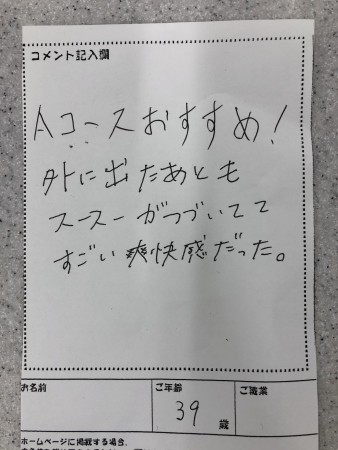 コメント記入欄
Aコースおすすめ!
外に出たあとも
スースーがつづいてて
すごい爽快感だった。
お名前 ご年齢 ご職業
39 歳
ホームページに掲載する場合、